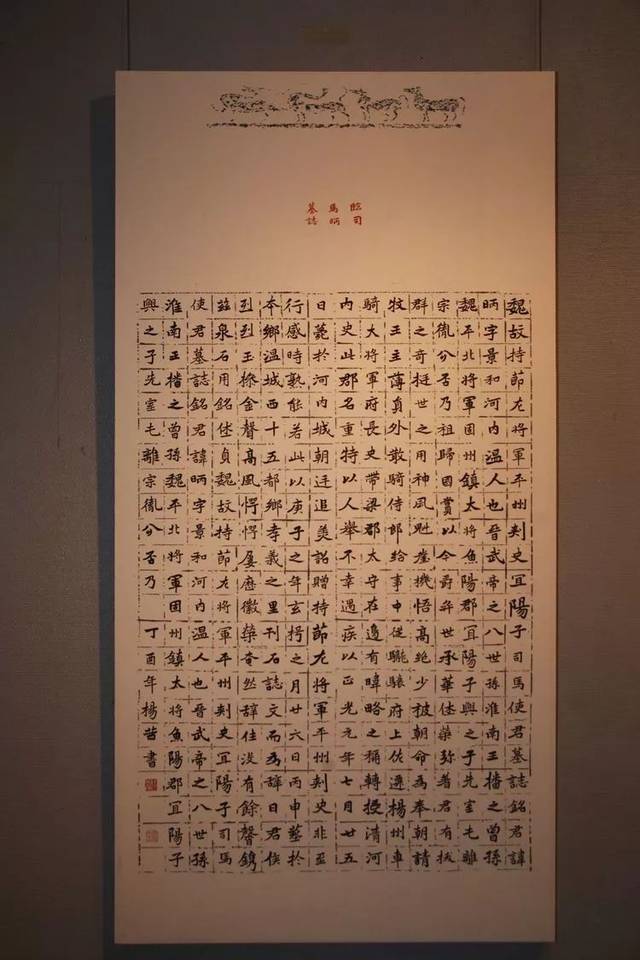 臨司
馬昞
墓誌
魏故持節左將軍平州刾史宜陽子司馬使君墓誌銘君諱
昞字景和河内温人也晉武帝之八世孫淮南王播之曾孫
魏平北將軍固州鎮大將魚陽郡宜陽子興之子先室屯離
宗胤分否乃祖歸國賞以今爵年世承華休榮弥著君有拔
群之奇挺世之用神風魁崖機悟高絶少被朝命為奉朝請
牧王主薄貟外散騎侍郎給事中從驤驤府上佐遷揚州車
騎大將軍府長史帶梁郡太守在邊有暐略之稱轉授清河
内史此郡名重特以人舉不幸遇疾以正光元年七月廿五
日薨於河内城朝廷追美詔贈持節左將軍平州刾史非至
行感時熟能若此以庚子之年玄枵之月廿六日丙申葬於
本鄉温城西十五都鄉孝義之里刊石誌文而為辭曰君侯
烈烈玉操金聲高風愕愕屢應徽榮奇然辭住没有餘聲鐫
兹泉石用銘休貞魏故持節左將軍平州刾史宜陽子司馬
使君墓誌銘君諱昞字景和河内温人也晉武帝之八世孫
淮南王播之曾孫魏平北將軍固州鎮大將魚陽郡宜陽子
興之子先室屯離宗胤分否乃 丁酉年楊書